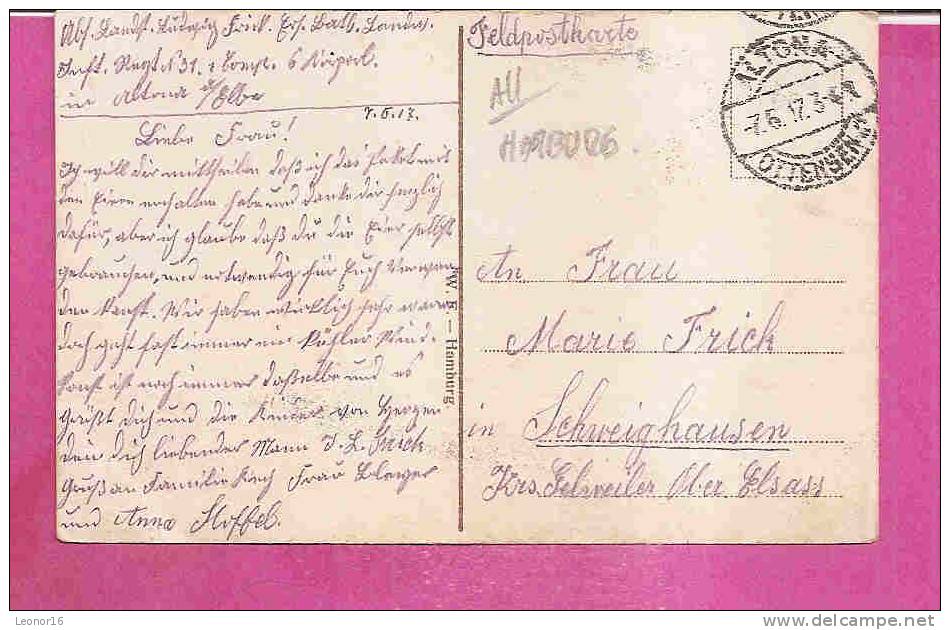 Abs. Landst. Ludwig Frick. Ers. Batl. Landw.
Inft. Regt N 31. 1 Comp. 6 Korpol.
in Altona a/Elbe
7.6.17.
Liebe Frau!
Ich will dir mittheilen daß ich das Paket mit
den Eiern erhalten habe und danke dir herzlich
dafür, aber ich glaube daß du die Eier selbst
gebrauchen, und notwendig für Euch Verwen
den kanst. Wir haben wirklich sehr warm
doch geht fast immer ein kühler Wind.
sonst ist noch immer dasselbe und es
Grüßt dich und die Kinder von Herzen
dein dich liebender Mann L. Frick
Gruß an Familie Koch Frau
und Anna Stoffel.
W. F. — Hamburg.
Feldpostkarte
All
HAMBURG.
ALTONA
-7.6.17.3-4
OTTENSEN
An Frau
Marie Frick
in Schweighausen
Krs. Gebweiler Ober Elsass
Leonor16
delcampe.net